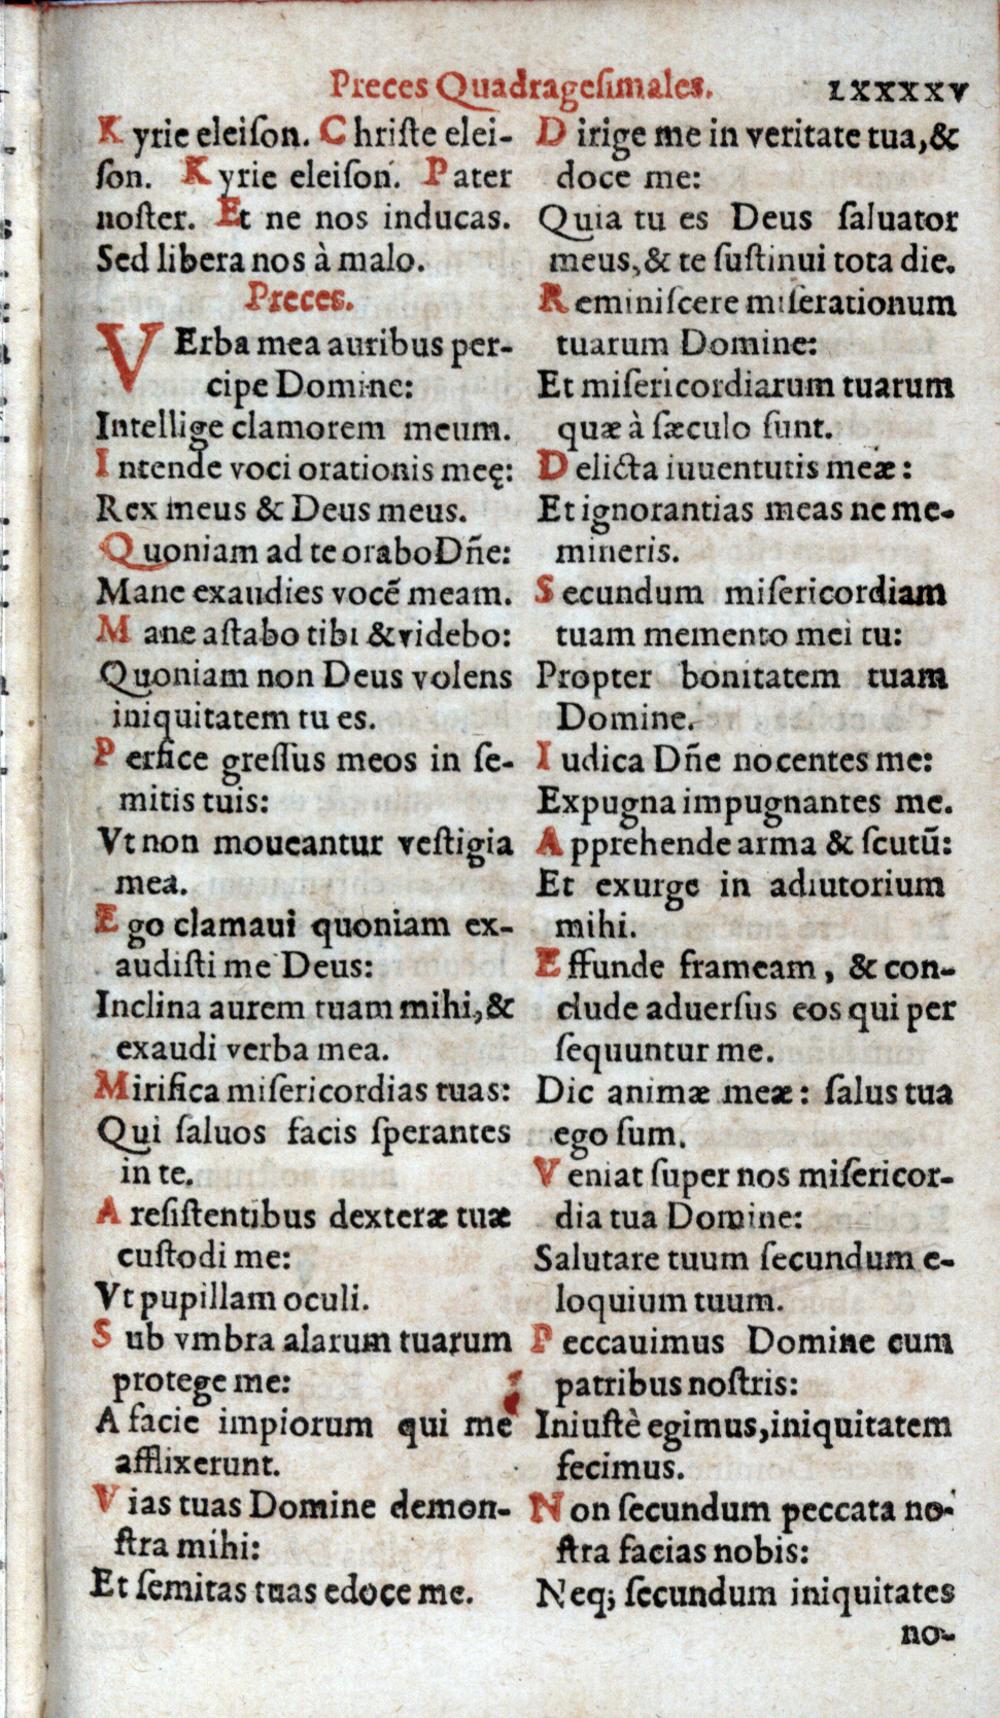 Preces Quadrageſimales. LXXXXV
Kyrie eleiſon. Chriſte elei-
ſon. Kyrie eleiſon. Pater
noſter. Et ne nos inducas.
Sed libera nos à malo.
Preces.
VErba mea auribus per-
cipe Domine:
Intellige clamorem meum.
Intende voci orationis meę:
Rex meus & Deus meus.
Quoniam ad te orabo Dñe:
Mane exaudies vocẽ meam.
Mane aſtabo tibi & videbo:
Quoniam non Deus volens
iniquitatem tu es.
Perfice greſſus meos in ſe-
mitis tuis:
Vt non moueantur veſtigia
mea.
Ego clamaui quoniam ex-
audiſti me Deus:
Inclina aurem tuam mihi, &
exaudi verba mea.
Mirifica miſericordias tuas:
Qui ſaluos facis ſperantes
in te.
A reſiſtentibus dexteræ tuæ
cuſtodi me:
Vt pupillam oculi.
Sub vmbra alarum tuarum
protege me:
A facie impiorum qui me
afflixerunt.
Vias tuas Domine demon-
ſtra mihi:
Et ſemitas tuas edoce me.
Dirige me in veritate tua, &
doce me:
Quia tu es Deus ſaluator
meus, & te ſuſtinui tota die.
Reminiſcere miſerationum
tuarum Domine:
Et miſericordiarum tuarum
quæ à ſæculo ſunt.
Delicta iuuentutis meæ:
Et ignorantias meas ne me-
mineris.
Secundum miſericordiam
tuam memento mei tu:
Propter bonitatem tuam
Domine.
Iudica Dñe nocentes me:
Expugna impugnantes me.
Apprehende arma & ſcutũ:
Et exurge in adiutorium
mihi.
Effunde frameam, & con-
clude aduerſus eos qui per
ſequuntur me.
Dic animæ meæ: ſalus tua
ego ſum.
Veniat ſuper nos miſericor-
dia tua Domine:
Salutare tuum ſecundum e-
loquium tuum.
Peccauimus Domine cum
patribus noſtris:
Iniuſtè egimus, iniquitatem
fecimus.
Non ſecundum peccata no-
ſtra facias nobis:
Neq; ſecundum iniquitates
no-